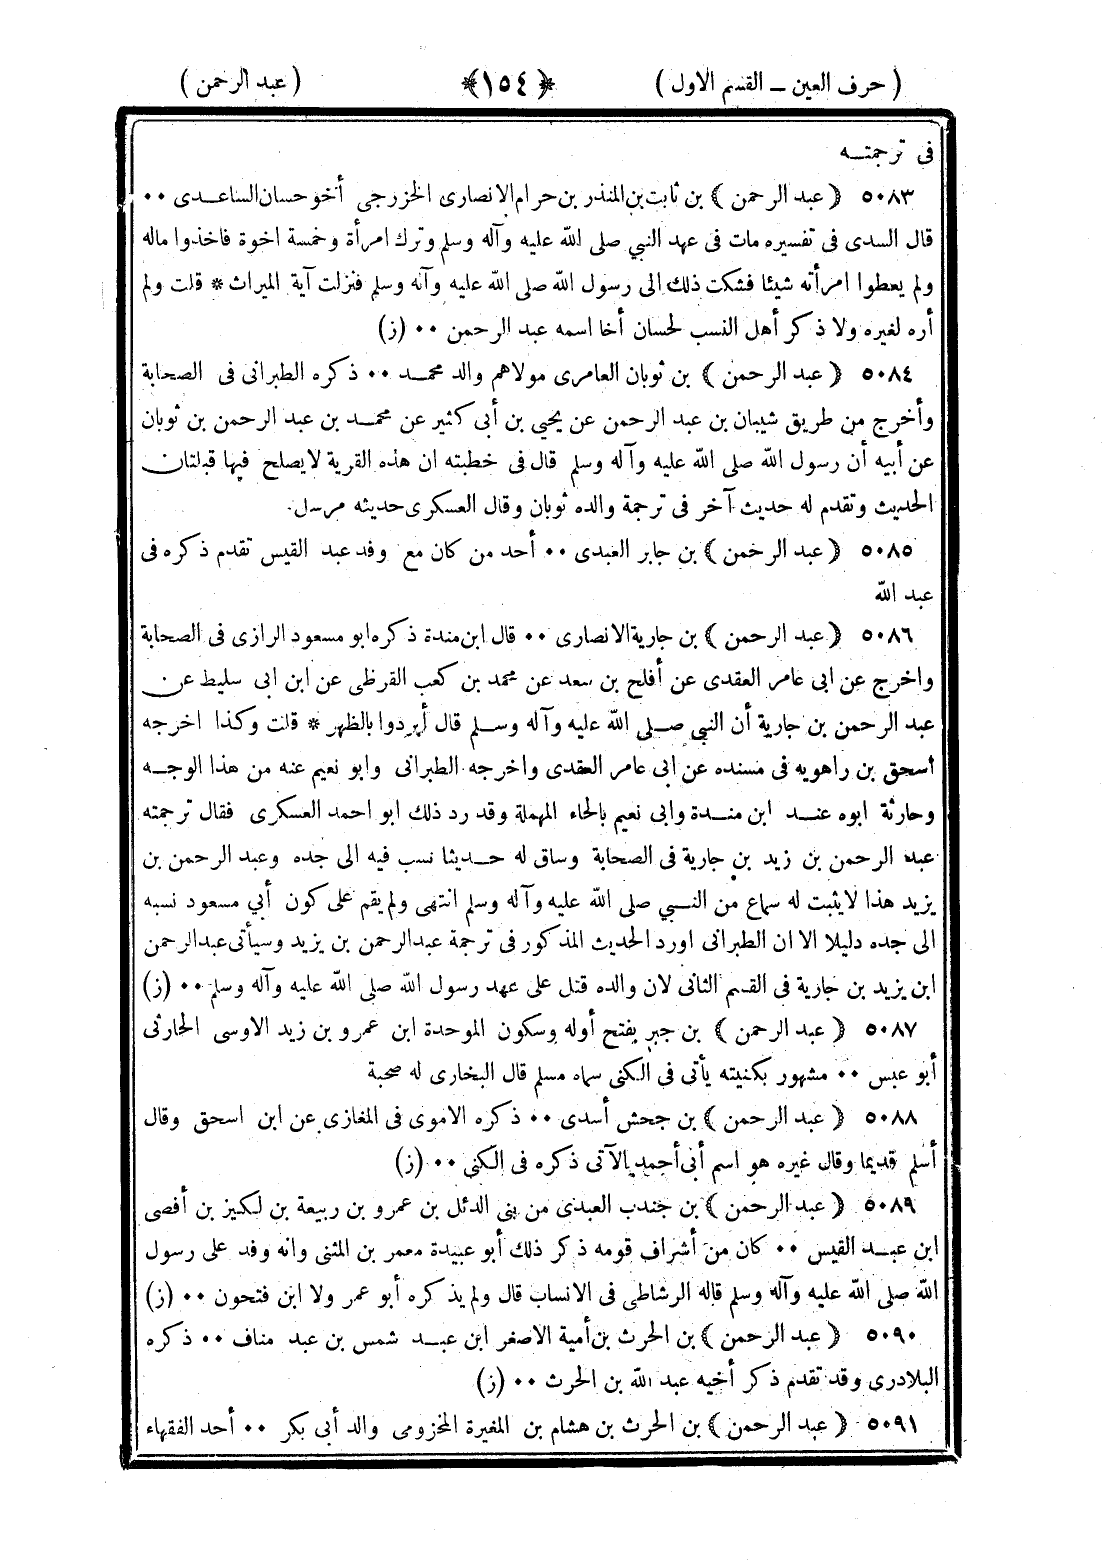 ( حرف العين ــ القسم الاول ) ﴿ ١٥٤ ﴾ ( عبد الرحمن )
فى ترجمتــه
٥٠٨٣ ( عبد الرحمن ) بن ثابت بن المنذر بن حرام الانصارى الخزرجي أخو حسان الساعــدى ٠٠
قال السدى فى تفسيره مات فى عهد النبي صلى الله عليه وآله وسلم وترك امرأة وخمسة اخوة فاخذوا ماله
ولم يعطوا امرأته شيئا فشكت ذلك الى رسول الله صلى الله عليه وآله وسلم فنزلت آية الميراث * قلت ولم
أره لغيره ولا ذكر أهل النسب لحسان أخا اسمه عبد الرحمن ٠٠ (ز)
٥٠٨٤ ( عبد الرحمن ) بن ثوبان العامرى مولاهم والد محمــد ٠٠ ذكره الطبرانى فى الصحابة
وأخرج من طريق شيبان بن عبد الرحمن عن يحيي بن أبى كثير عن محمــد بن عبد الرحمن بن ثوبان
عن أبيه أن رسول الله صلى الله عليه وآله وسلم قال فى خطبته ان هذه القرية لا يصلح فيها قبلتان
الحديث وتقدم له حديث آخر فى ترجمة والده ثوبان وقال العسكرى حديثه مرسل.
٥٠٨٥ ( عبد الرحمن ) بن جابر العبدى ٠٠ أحد من كان مع وفد عبد القيس تقدم ذكره فى
عبد الله
٥٠٨٦ ( عبد الرحمن ) بن جارية الانصارى ٠٠ قال ابن مندة ذكره ابو مسعود الرازى فى الصحابة
واخرج عن ابى عامر العقدى عن أفلح بن سعد عن محمد بن كعب القرظى عن ابن ابى سليط عن
عبد الرحمن بن جارية أن النبي صــلى الله عليه وآله وســلم قال أبردوا بالظهر * قلت وكذا اخرجه
اسحق بن راهويه فى مسنده عن ابى عامر العقدى واخرجه الطبرانى وابو نعيم عنه من هذا الوجــه
وحارثة ابوه عنــد ابن منــدة وابى نعيم بالحاء المهملة وقد رد ذلك ابو احمد العسكرى فقال ترجمته
عبد الرحمن بن زيد بن جارية فى الصحابة وساق له حــديثا نسب فيه الى جده وعبد الرحمن بن
يزيد هذا لا يثبت له سماع من النــبي صلى الله عليه وآله وسلم انتهى ولم يقم على كون أبي مسعود نسبه
الى جده دليلا الا ان الطبرانى اورد الحديث المذكور فى ترجمة عبد الرحمن بن يزيد وسيأتى عبد الرحمن
ابن يزيد بن جارية فى القسم الثانى لان والده قتل على عهد رسول الله صلى الله عليه وآله وسلم ٠٠ (ز)
٥٠٨٧ ( عبد الرحمن ) بن جبر بفتح أوله وسكون الموحدة ابن عمرو بن زيد الاوسى الحارثى
أبو عبس ٠٠ مشهور بكنيته يأتى فى الكنى سماه مسلم قال البخارى له صحبة
٥٠٨٨ ( عبد الرحمن ) بن جحش أسدى ٠٠ ذكره الاموى فى المغازى عن ابن اسحق وقال
أسلم قديما وقال غيره هو اسم أبى أحمد الآتى ذكره فى الكنى ٠٠ (ز)
٥٠٨٩ ( عبد الرحمن ) بن جندب العبدى من بنى الدئل بن عمرو بن ربيعة بن لكيز بن أفصى
ابن عبــد القيس ٠٠ كان من أشراف قومه ذكر ذلك أبو عبيدة معمر بن المثنى وانه وفد على رسول
الله صلى الله عليه وآله وسلم قاله الرشاطى فى الانساب قال ولم يذكره أبو عمر ولا ابن فتحون ٠٠ (ز)
٥٠٩٠ ( عبد الرحمن ) بن الحرث بن أمية الاصغر ابن عبــد شمس بن عبد مناف ٠٠ ذكره
البلادرى وقد تقدم ذكر أخيه عبد الله بن الحرث ٠٠ (ز)
٥٠٩١ ( عبد الرحمن ) بن الحرث بن هشام بن المغيرة المخزومى والد أبى بكر ٠٠ أحد الفقهاء